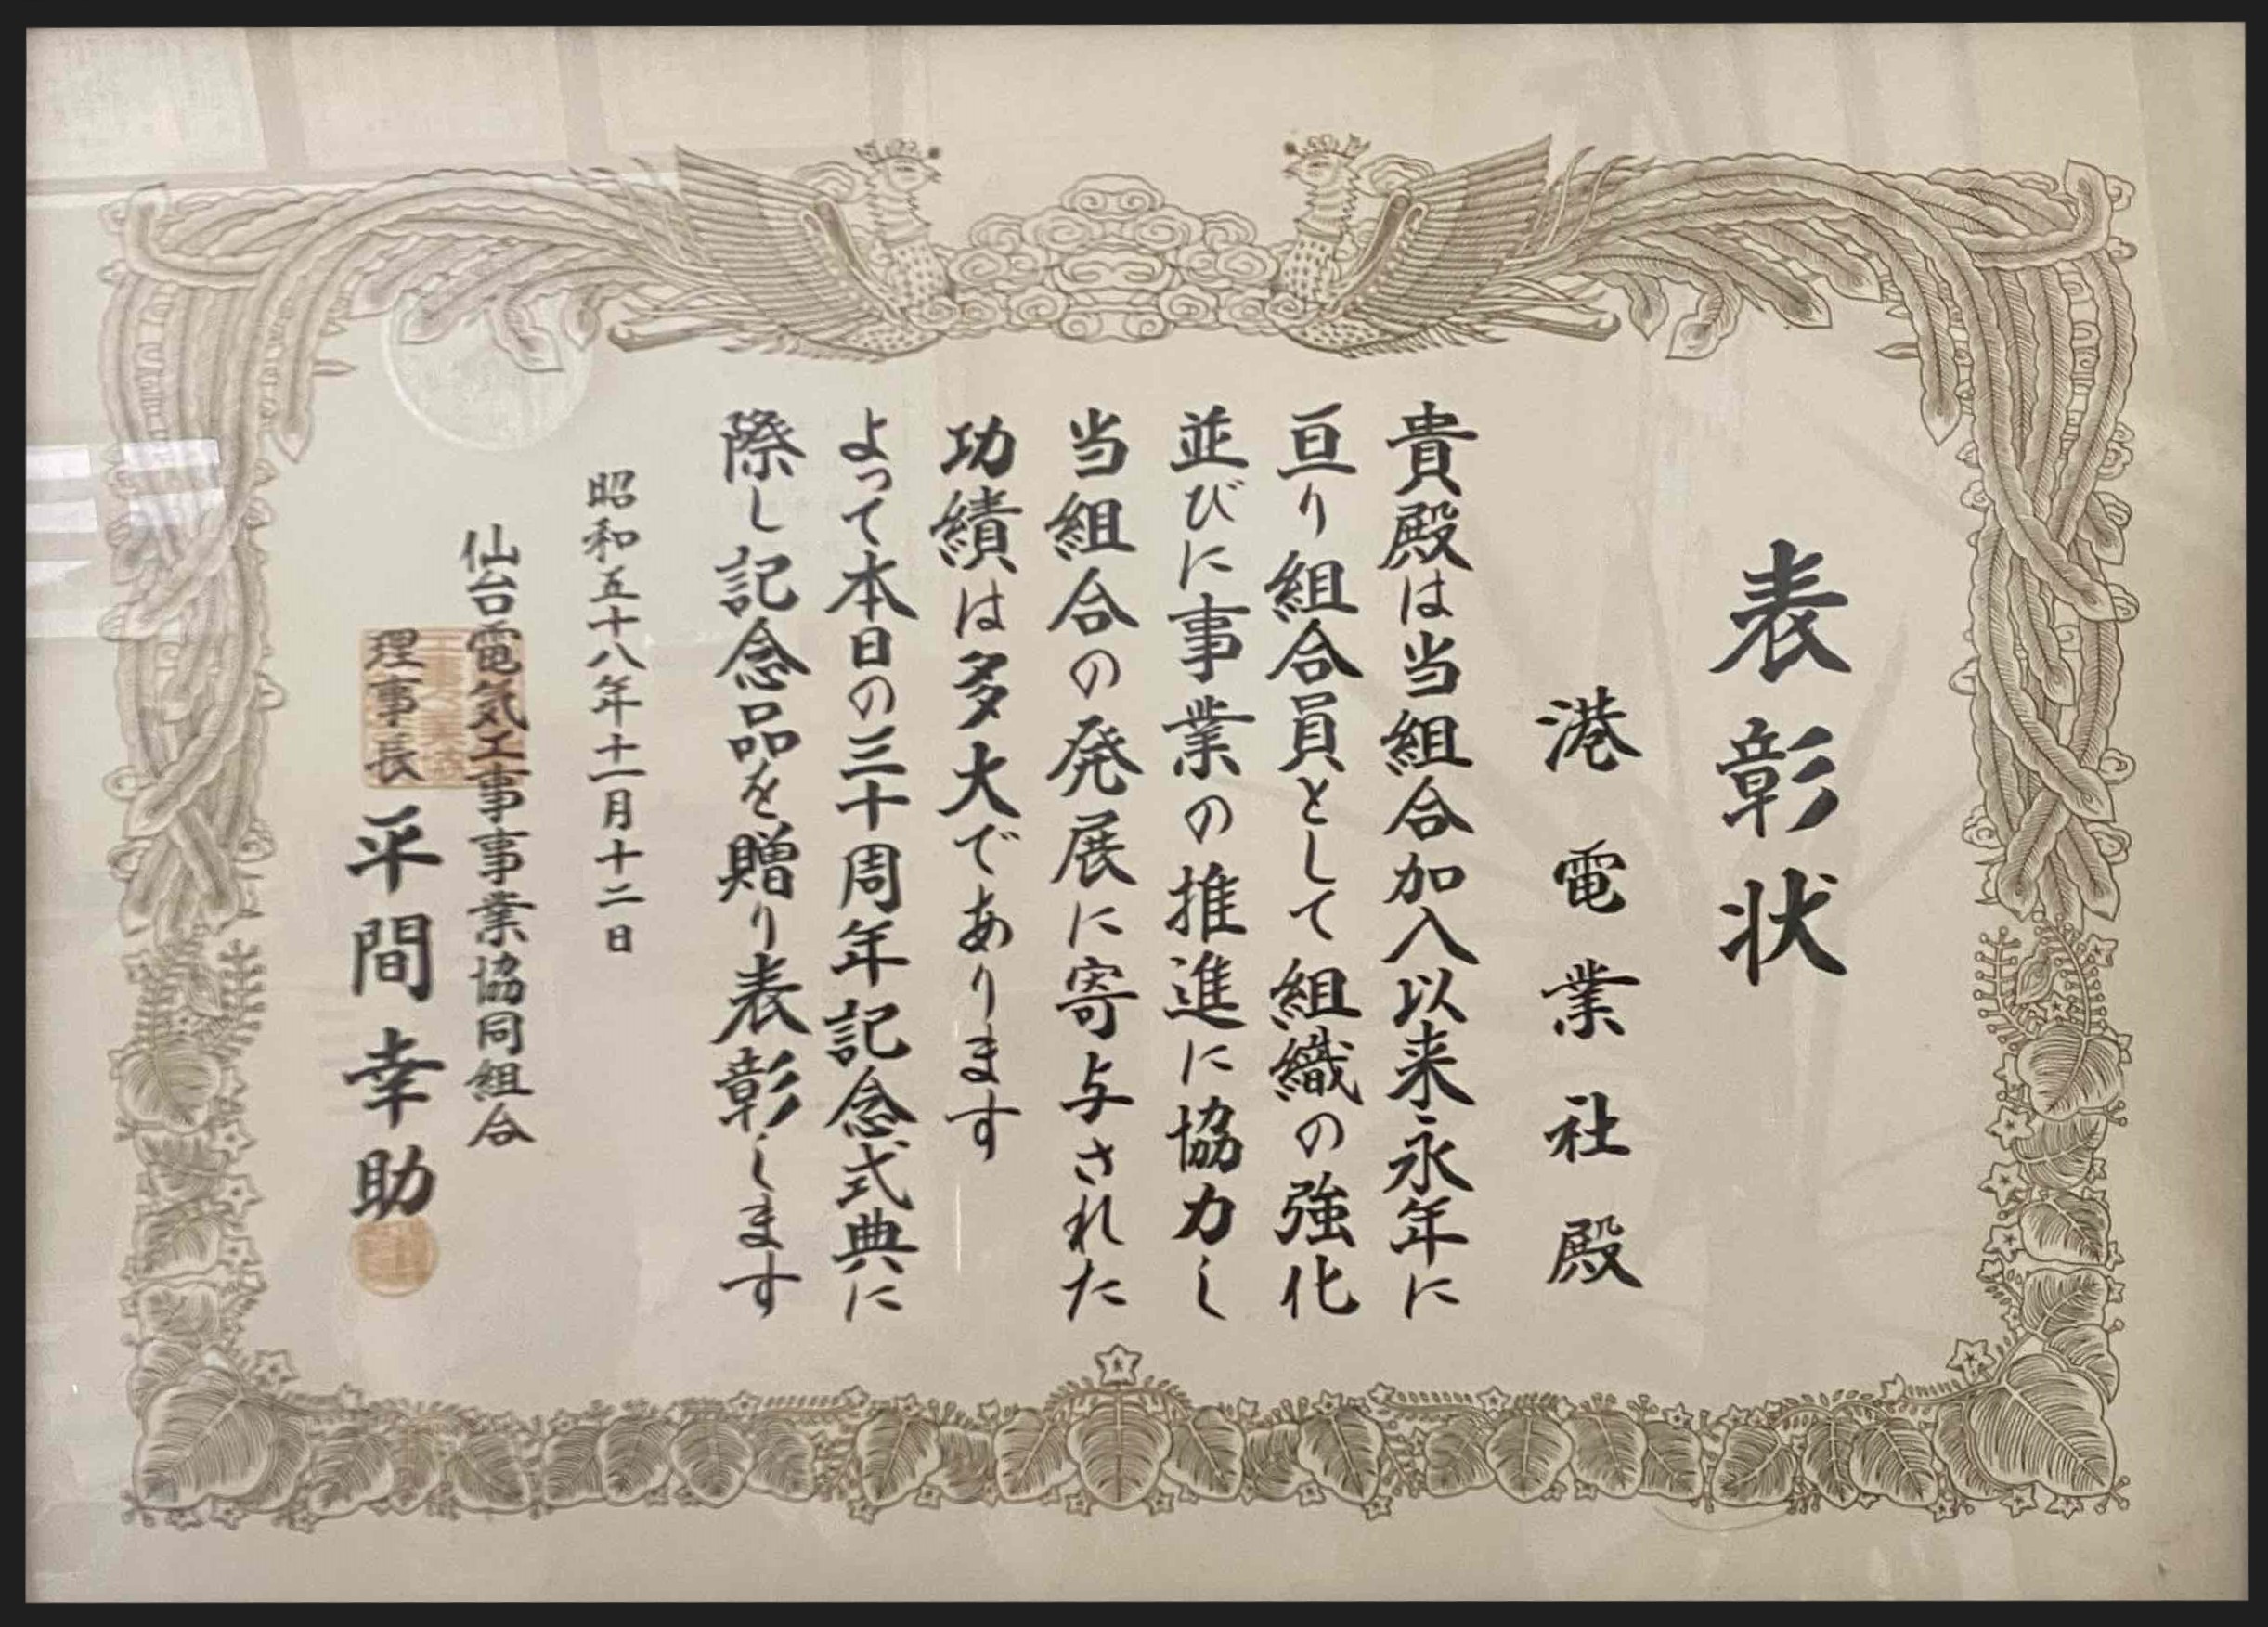 表彰状
港電業社殿
貴殿は当組合加入以来永年に
亘り組合員として組織の強化
並びに事業の推進に協力し
当組合の発展に寄与された
功績は多大であります
よって本日の三十周年記念式典に
際し記念品を贈り表彰します
昭和五十八年十一月十二日
仙台電気工事事業協同組合
理事長 平間幸助